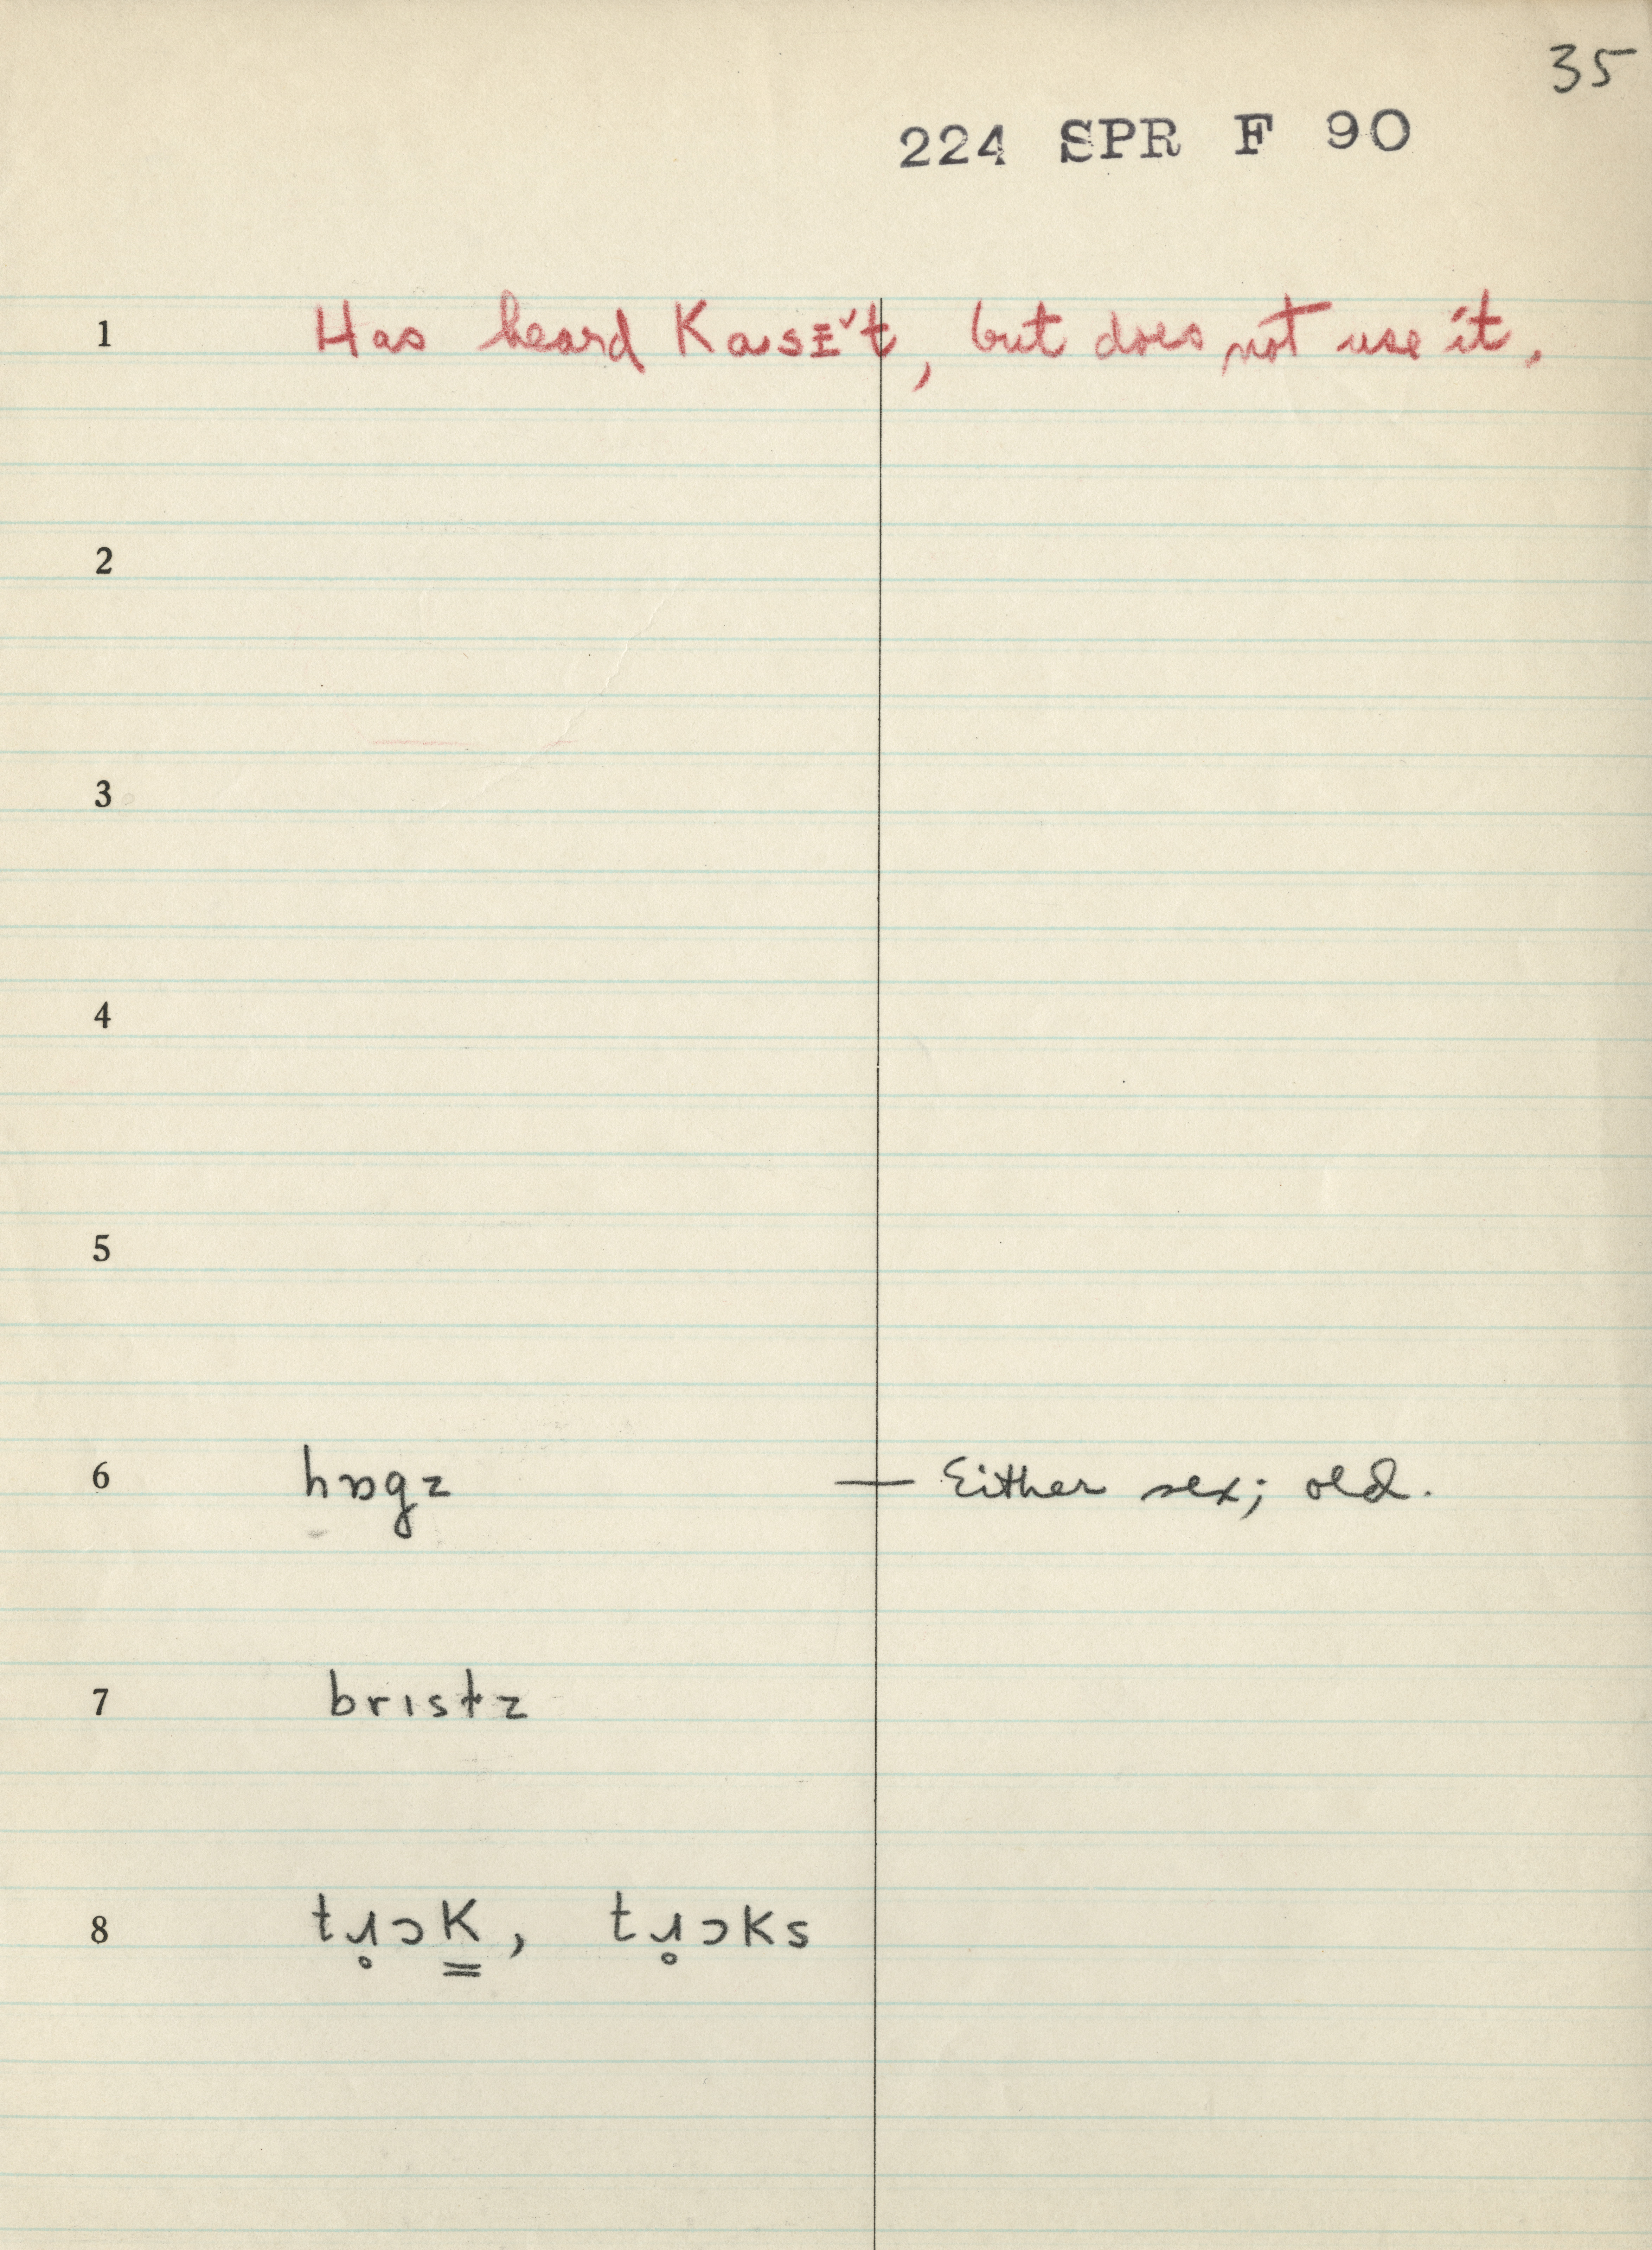 35
224 SPR F 90
1 Has heard kɑsɛ't, but does not use it.
2
3
4
5
6 hɒgz — Either sex; old.
7 brɪstz
8 tɹ̥ɔk͇, tɹ̥ɔks